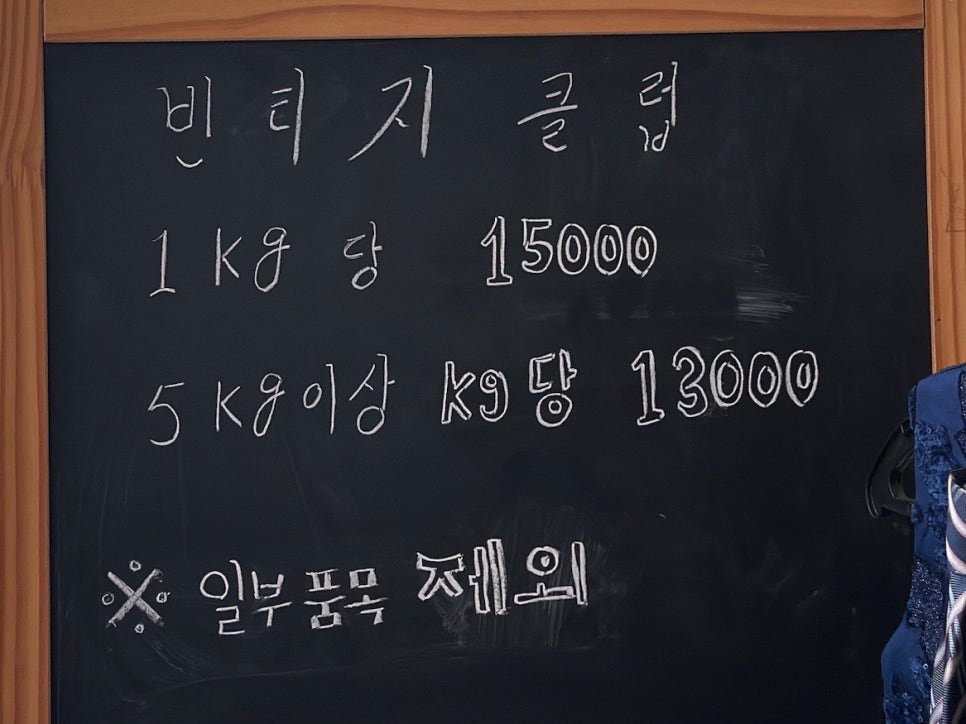 빈티지 클럽
1kg 당 15000
5kg이상 kg당 13000
※ 일부품목 제외